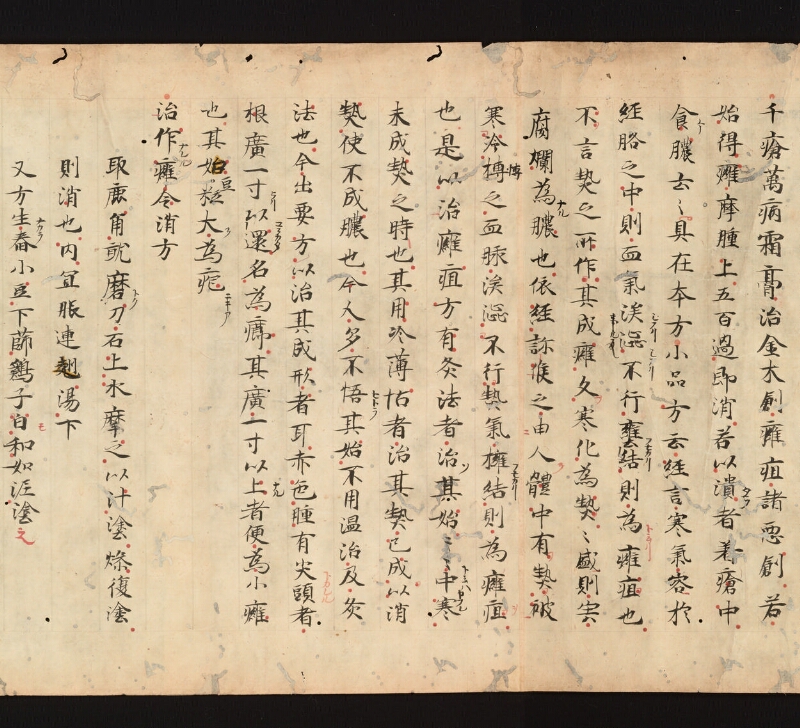 千瘡萬病霜膏治金木創癰疽諸惡創若
始得癰摩腫上五百過即消若以潰者著瘡中
食膿去〻具在本方小品方云經言寒氣客於
經胳之中則血氣涘澀不行壅結則為癰疽也
不言熱之所作其成癰久寒化為熱〻盛則宍
腐爛為膿也依經訴候之由人體中有熱被
寒冷搏之血脉涘澀不行熱氣擁結則為癰疽
也是以治癰疽方有灸法者治其始〻中寒
未成熱之時也其用冷薄怗者治其熱已成以消
熱使不成膿也今人多不悟其始不用温治及灸
法也今出要方以治其成形者耳赤色腫有尖頭者
根廣一寸以還名為癤其廣一寸以上者便為小癰
也其如豆粒大為疱
治作癰令消方
取鹿角就磨刀石上水摩之以汁塗燥復塗
則消也内宜服連翹湯下
又方生舂小豆下篩鷄子白和如涇塗之